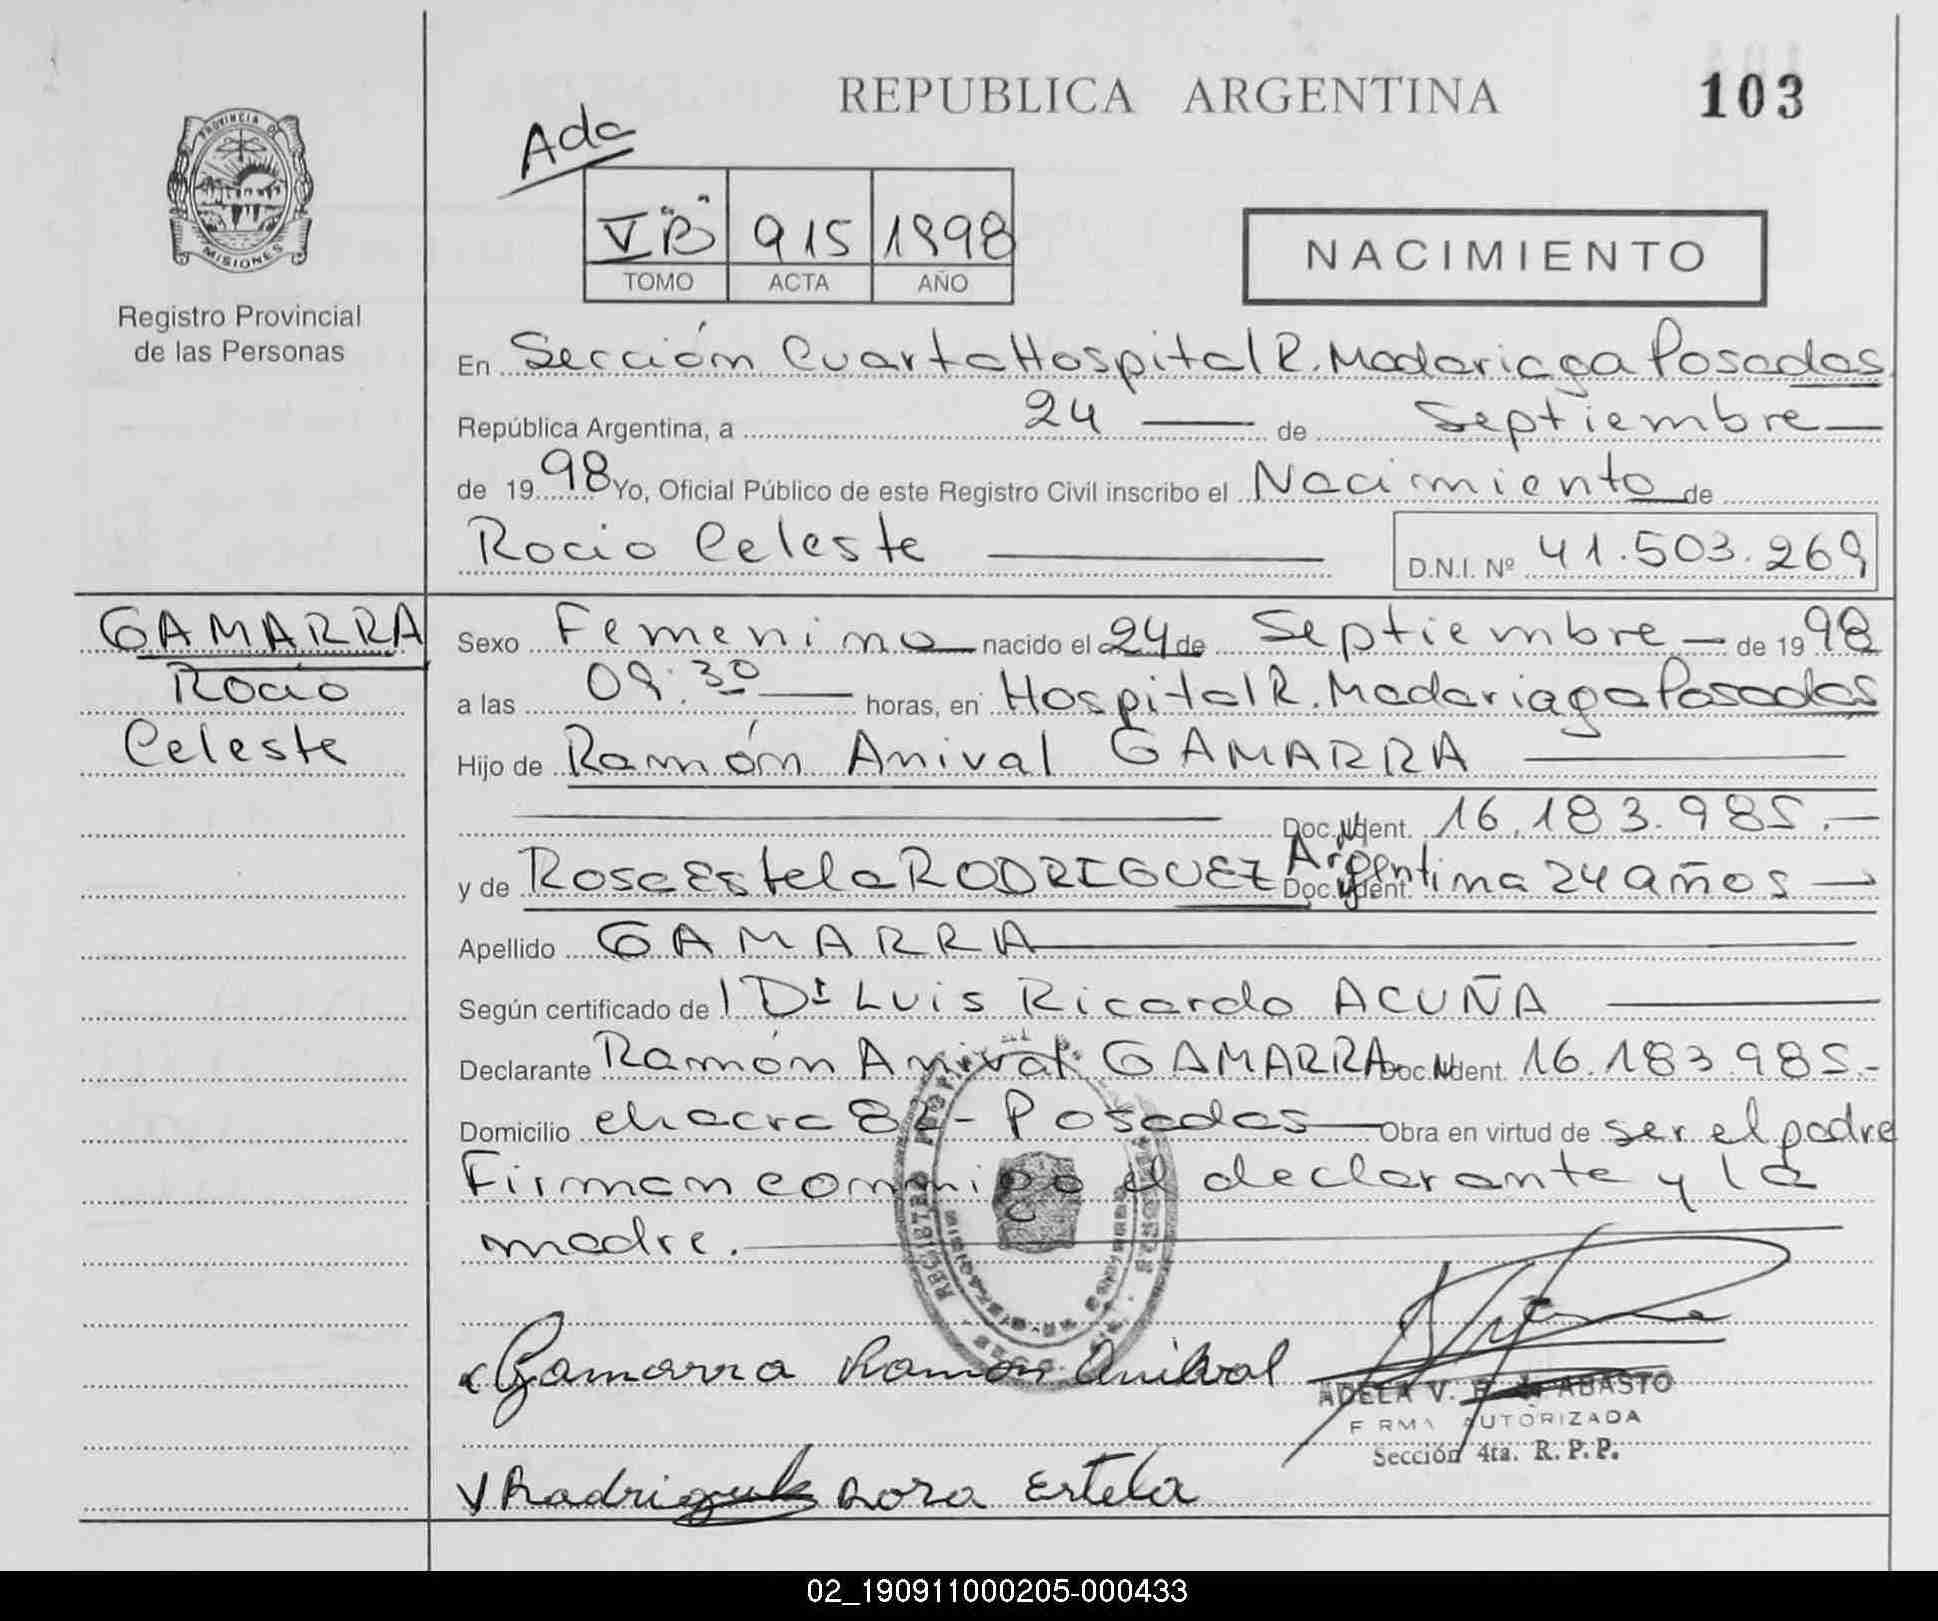 REPUBLICA ARGENTINA
103
Ada
V "B" 915 1998
TOMO ACTA AÑO
NACIMIENTO
PROVINCIA DE
MISIONES
Registro Provincial
de las Personas
En Sección Cuarta Hospital R. Madariaga Posadas
República Argentina, a 24 de Septiembre
de 1998 Yo, Oficial Público de este Registro Civil inscribo el Nacimiento de
Rocio Celeste D.N.I. Nº 41.503.269
GAMARRA
Rocio
Celeste
Sexo Femenino nacido el 24 de Septiembre de 1998
a las 09:30 horas, en Hospital R. Madariaga Posadas
Hijo de Ramón Anival GAMARRA
Doc. Ident. 16.183.985.-
y de Rosa Estela RODRIGUEZ Doc. Ident. Argentina 24 años
Apellido GAMARRA
Según certificado de l Dr Luis Ricardo ACUÑA
Declarante Ramón Anival GAMARRA Doc. Ident. 16.183.985.-
Domicilio chacra - Posadas Obra en virtud de ser el padre
Firman conmigo el declarante y la
madre.
Gamarra Ramon Anibal
ADELA V. ABASTO
FIRMA AUTORIZADA
Sección 4ta. R. P. P.
Rodriguez Rosa Estela
02_190911000205-000433